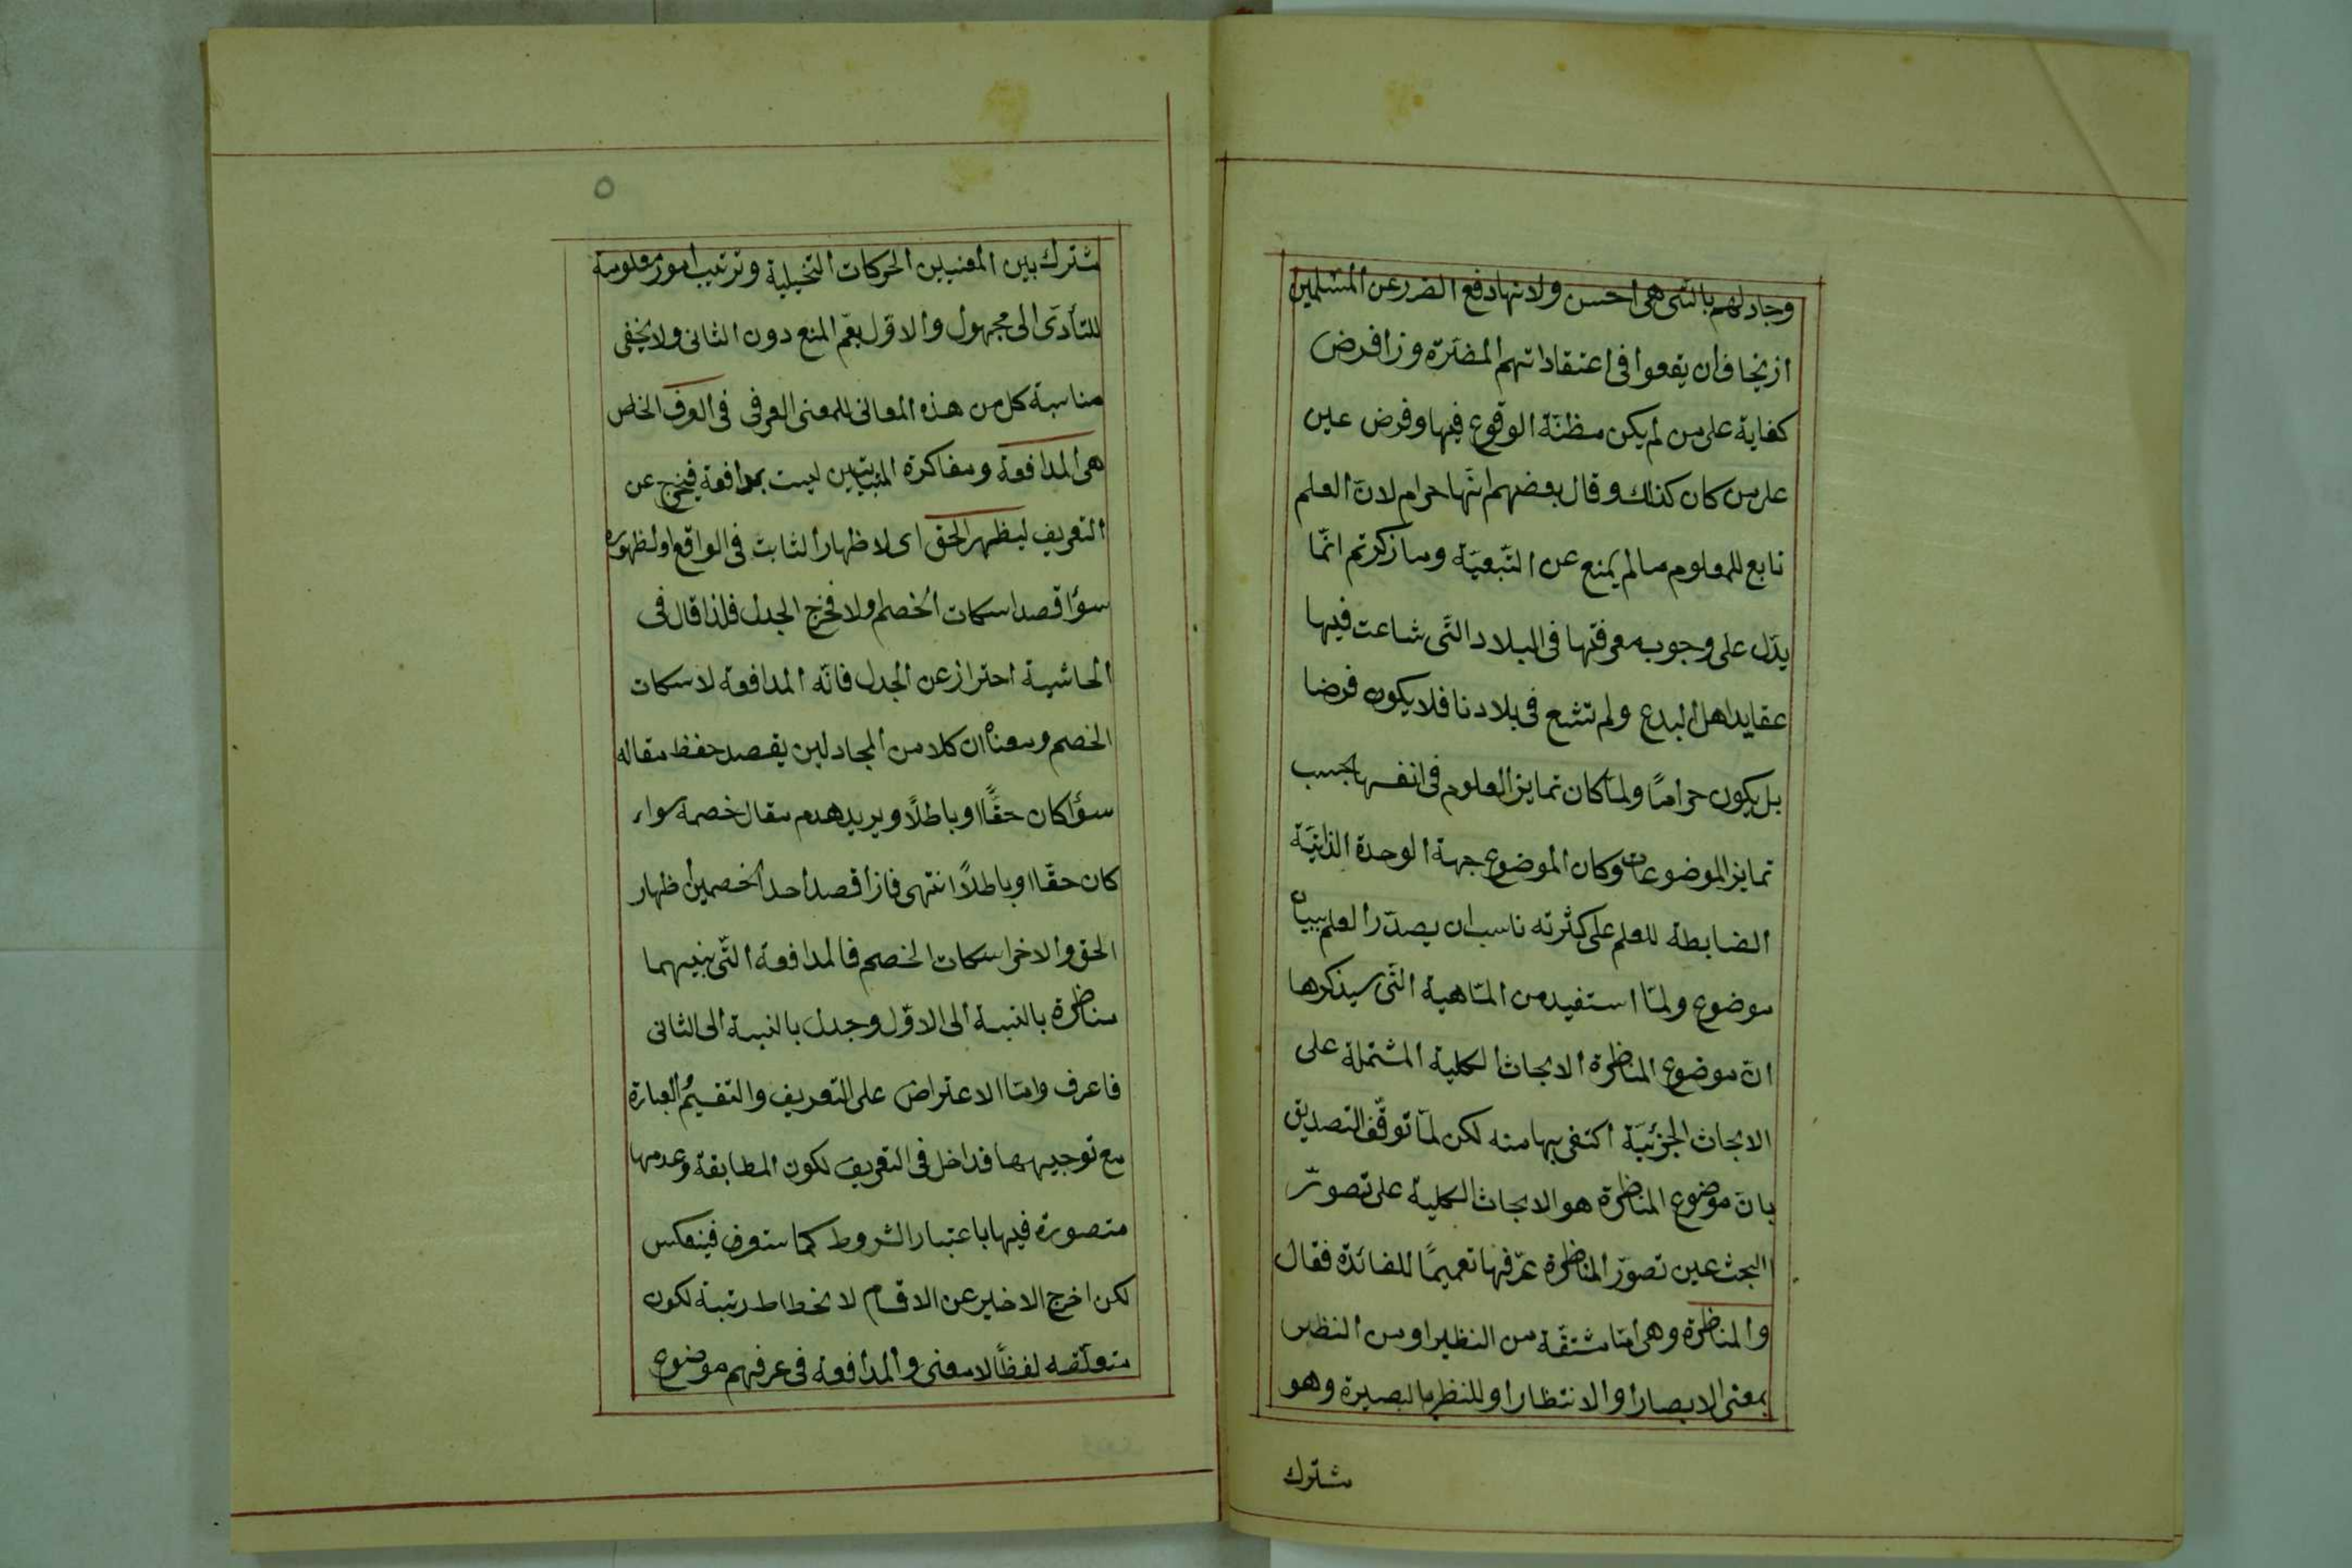 وجادلهم بالتی هی احسن ولانها دفع الضرر عن المسلمین
ازیخاف ان یقعوا فی اعتقاداتهم المضرّة وزا فرض
کفایة علی من لم یکن مظنّة الوقوع فیها وفرض عین
علی من کان کذلك وقال بعضهم انّها حرام لانّ العلم
تابع للمعلوم مالم یمنع عن التّبعیّة وما زکرتم انّما
یدّل علی وجوب معرفتها فی البلاد التّی شاعت فیها
عقاید اهل البدع ولم تشع فی بلادنا فلا یکون فرضا
بل یکون حرامًا ولمّا کان تمایز العلوم فی انفسها بحسب
تمایز الموضوعات وکان الموضوع جهة الوحدة الذاتیّة
الضابطة للعلم علی کثرته ناسب ان یصدّر العلم ببیان
موضوع ولمّا استفید من الماهیة التّی سیذکرها
انّ موضوع المناظرة الابحاث الکلیة المشتملة علی
الابحاث الجزئیّة اکتفی بها منه لکن لمّا توقّف التصدیق
بانّ موضوع المناظرة هو الابحاث الکلیة علی تصوّر
البحث عین تصوّر المناظرة عرّفها تعمیمًا للفائدة فقال
والمناظرة وهی امّا مشتقّة من النظیر او من النظر
بمعنی الابصار او الانتظار او للنظر بالبصیرة وهو
مشترك
٥
مشترك بین المعنیین الحرکات التخیلیة وترتیب امور معلومة
للتأدّی الی مجهول والاوّل یعّم المنع دون الثانی ولا یخفی
مناسبة کل من هذه المعانی للمعنی العرفی فی العرف الخاص
هی المدافعة ومفاکرة المثبتین لیست بمدافعة فیخرج عن
التعریف لیظهر الحق ای لاظهار الثابت فی الواقع او لظهوره
سوٓا قصد اسکات الخصم اولا فخرج الجدل فلذا قال فی
الحاشیة احتراز عن الجدل فانّه المدافعة لاسکات
الخصم ومعناه ان کلا من المجادلین یقصد حفظ مقاله
سوٓا کان حقًّا او باطلًا ویرید هدم مقال خصمه سواء
کان حقّا او باطلًا انتهی فازا قصد احد الخصمین اظهار
الحق والاخر اسکات الخصم فالمدافعة التّی بینهما
مناظرة بالنسبة الی الاوّل وجدل بالنسبة الی الثانی
فاعرف وامّا الاعتراض علی التعریف والتقسیم والعبارة
مع توجیهها فداخل فی التعریف لکون المطابقة وعدمها
متصورة فیها باعتبار الشروط کما ستعرف فینعکس
لکن اخرج الاخیر عن الاقسام لانحطاط رتبة لکون
متعلّقه لفظًا لا معنی والمدافعة فی عرفهم موضوع